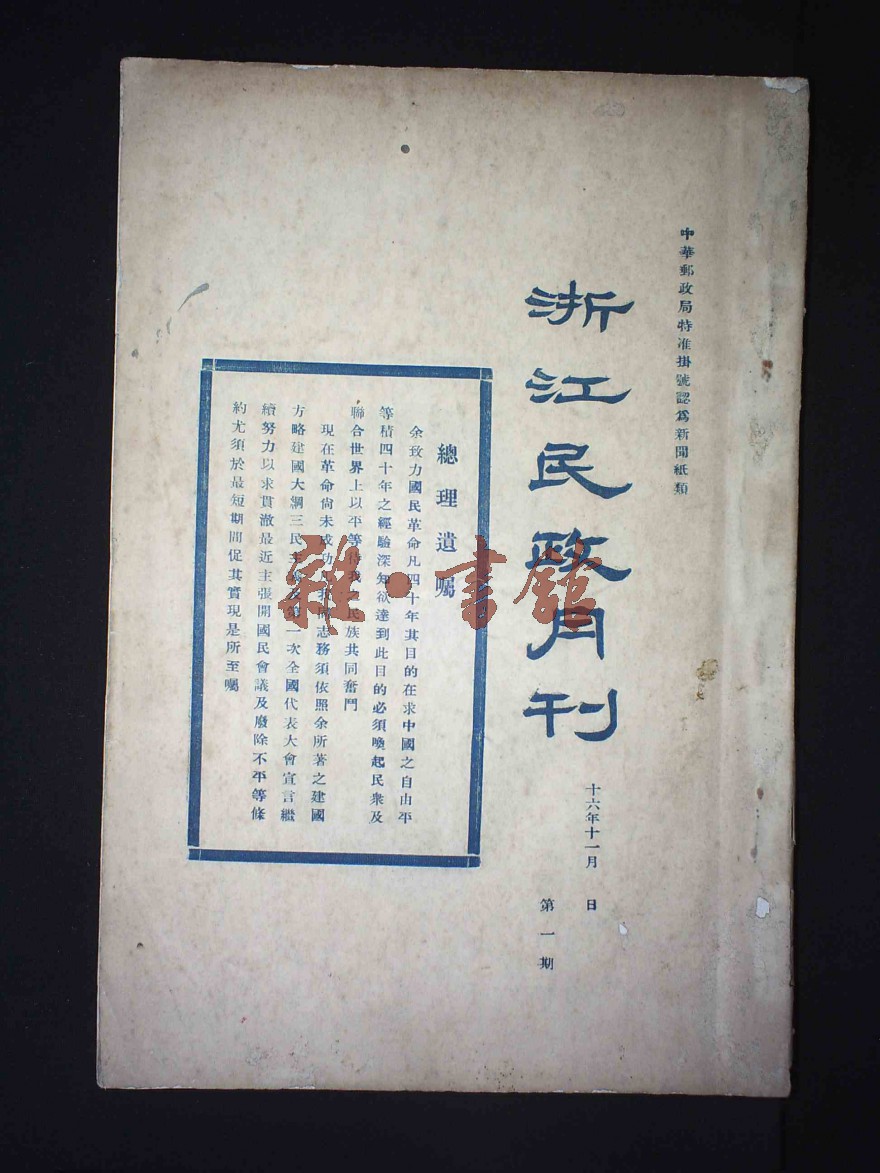 中華郵政局特准掛號認爲新聞紙類
浙江民政月刊
十六年十一月 日
第一期
總理遺囑
余致力國民革命凡四十年其目的在求中國之自由平
等積四十年之經驗深知欲達到此目的必須喚起民衆及
聯合世界上以平等待我之民族共同奮鬥
現在革命尚未成功凡我同志務須依照余所著之建國
方略建國大綱三民主義及第一次全國代表大會宣言繼
續努力以求貫澈最近主張開國民會議及廢除不平等條
約尤須於最短期間促其實現是所至囑
雜·書館